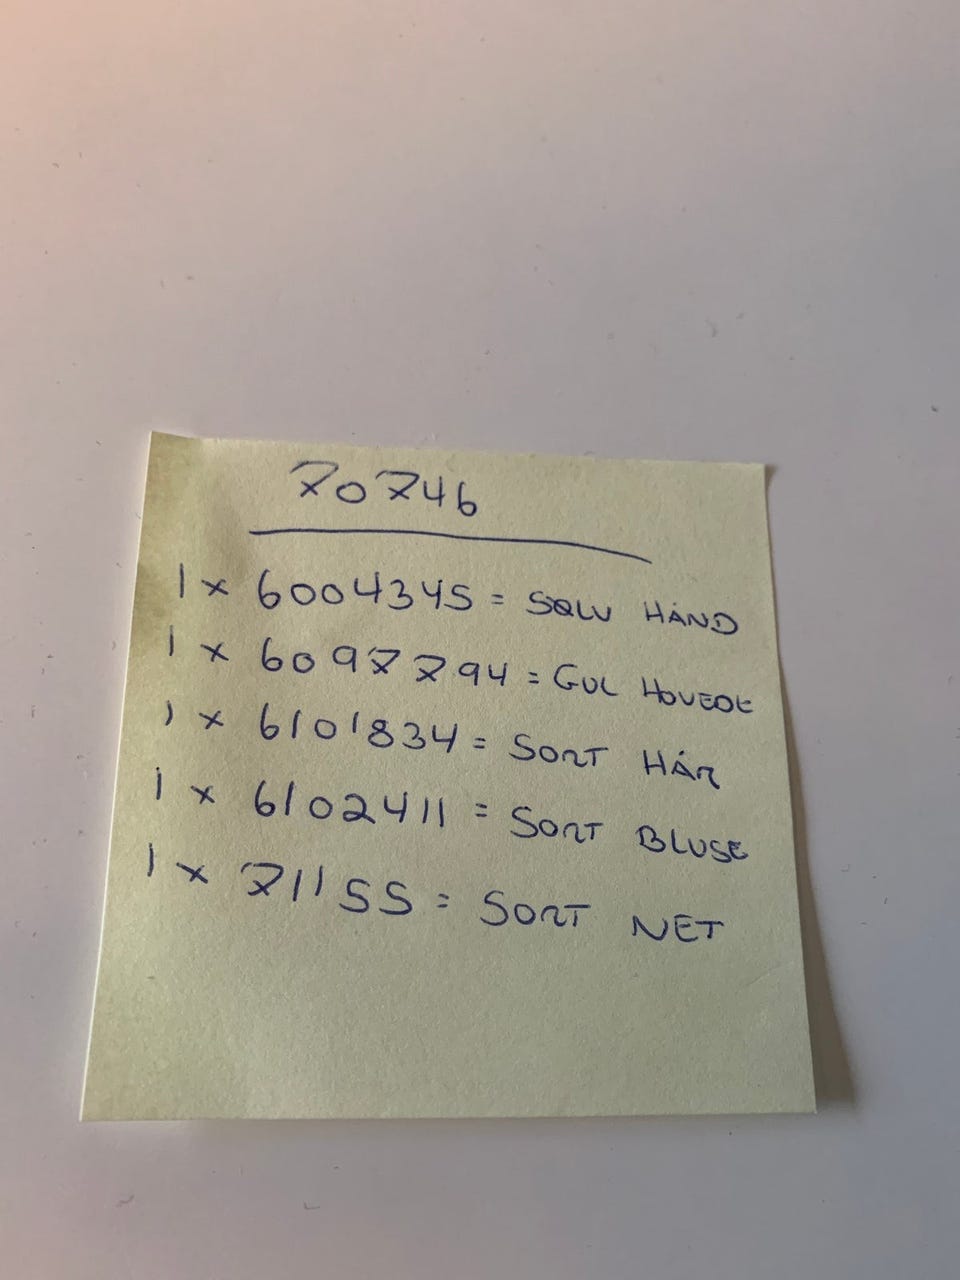 70746
1 x 6004345 = SØLV HÅND
1 x 6097794 = GUL HOVEDE
1 x 6101834 = SORT HÅR
1 x 6102411 = SORT BLUSE
1 x 71155 = SORT NET